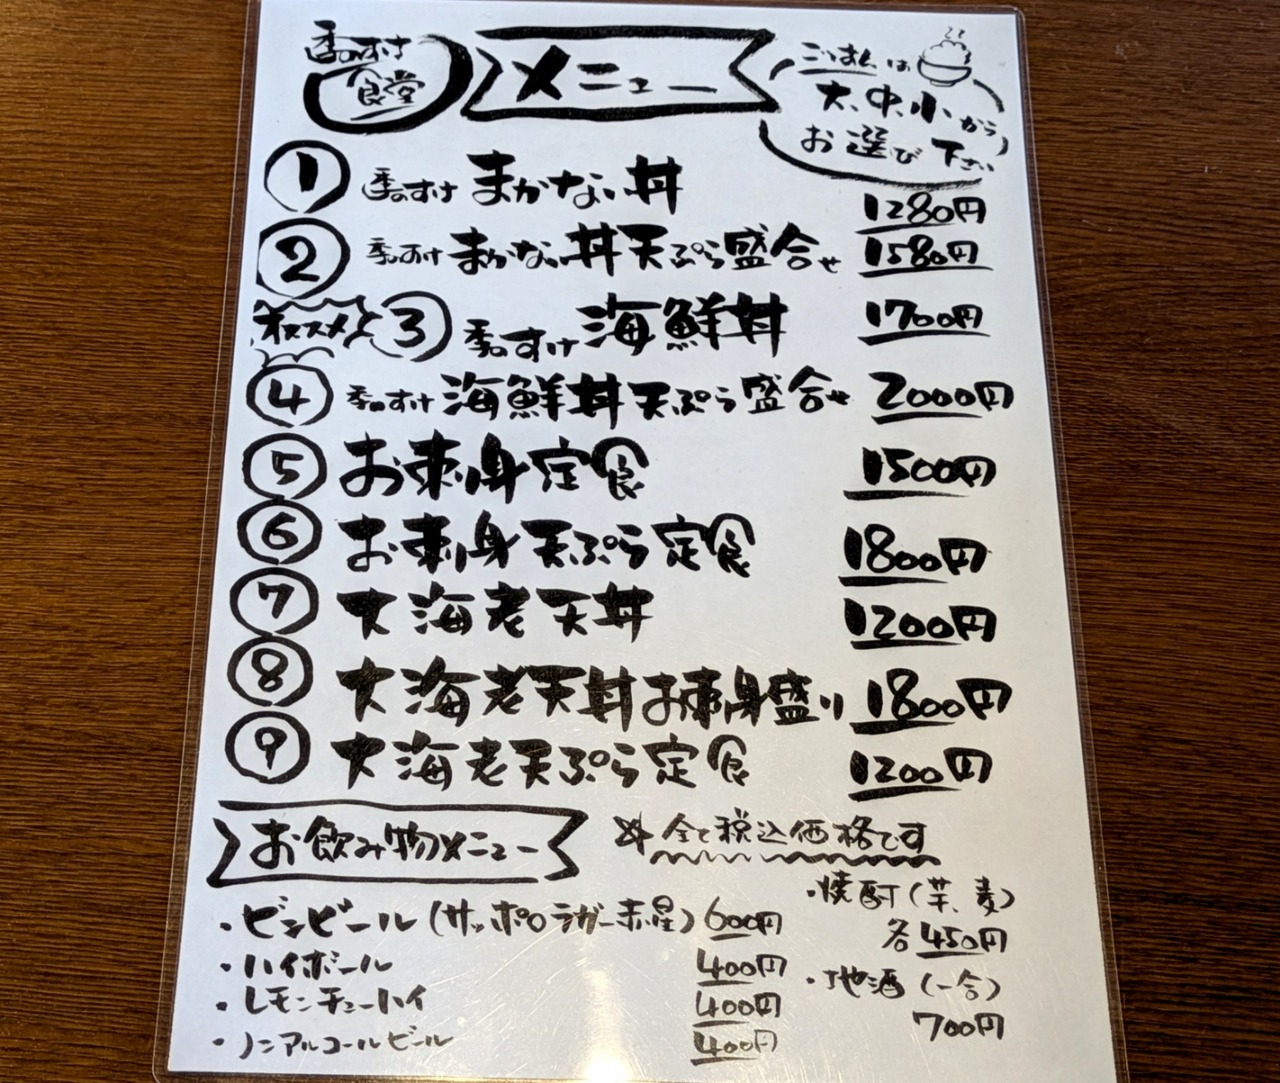 季のすけ
食堂
メニュー
ごはんは
大、中、小から
お選び下さい
① 季のすけ まかない丼 1280円
② 季のすけ まかない丼天ぷら盛合せ 1580円
オススメ ③ 季のすけ 海鮮丼 1700円
④ 季のすけ 海鮮丼天ぷら盛合せ 2000円
⑤ お刺身定食 1500円
⑥ お刺身天ぷら定食 1800円
⑦ 大海老天丼 1200円
⑧ 大海老天丼お刺身盛り 1800円
⑨ 大海老天ぷら定食 1200円
お飲み物メニュー
※全て税込価格です
・ビンビール(サッポロラガー赤星) 600円
・ハイボール 400円
・レモンチューハイ 400円
・ノンアルコールビール 400円
・焼酎(芋、麦)
各450円
・地酒(一合)
700円